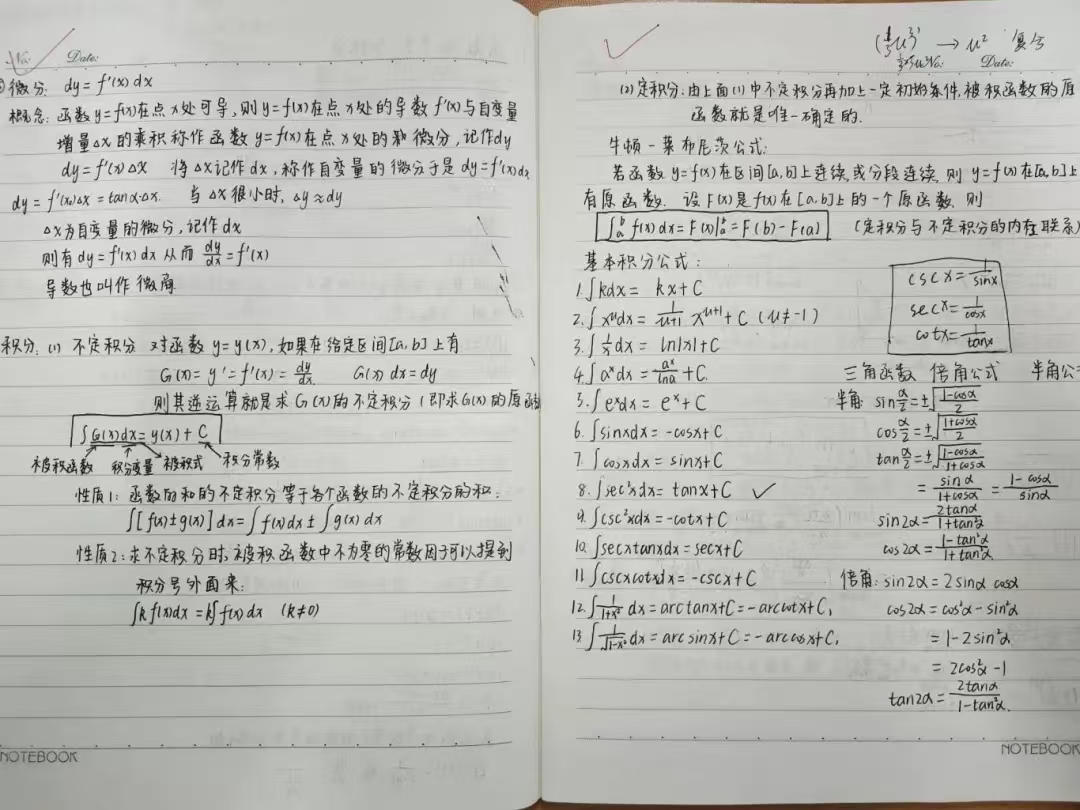 No: Date:
微分: dy = f'(x) dx
概念: 函数 y=f(x)在点x处可导,则y=f(x)在点x处的导数f'(x)与自变量
增量Δx的乘积称作函数y=f(x)在点x处的和微分,记作dy
dy=f'(x)Δx 将Δx记作dx,称作自变量的微分于是dy=f'(x)dx
dy=f'(x₀)Δx=tanα·Δx. 当Δx很小时,Δy≈dy
Δx为自变量的微分,记作dx
则有dy=f'(x)dx 从而 dy/dx=f'(x)
导数也叫作微商
积分: (1) 不定积分 对函数y=y(x),如果在给定区间[a,b]上有
G(x)=y'=f'(x)=dy/dx G(x)dx=dy
则其逆运算就是求G(x)的不定积分(即求G(x)的原函
∫G(x)dx=y(x)+C
被积函数 积分变量 被积式 积分常数
性质1: 函数的和的不定积分等于各个函数的不定积分的和:
∫[f(x)±g(x)]dx=∫f(x)dx±∫g(x)dx
性质2:求不定积分时,被积函数中不为零的常数因子可以提到
积分号外面来:
∫kf(x)dx=k∫f(x)dx (k≠0)
NOTEBOOK
→ u² 复合
No: Date:
(2)定积分:由上面(1)中不定积分再加上一定初始条件,被积函数的原
函数就是唯一确定的.
牛顿-莱布尼茨公式:
若函数y=f(x)在区间[a,b]上连续或分段连续,则y=f(x)在[a,b]上
有原函数. 设F(x)是f(x)在[a,b]上的一个原函数,则
∫ₐᵇ f(x)dx=F(x)|ₐᵇ=F(b)-F(a) (定积分与不定积分的内在联系)
基本积分公式:
cscx=1/sinx
secx=1/cosx
cotx=1/tanx
1.∫kdx= kx+C
2.∫xᵘdx= 1/(u+1) xᵘ⁺¹+C (u≠-1)
3.∫1/x dx= ln|x|+C
4.∫aˣdx=aˣ/lna+C.
5.∫eˣdx=eˣ+C
6.∫sinxdx=-cosx+C
7.∫cosxdx=sinx+C
8.∫sec²xdx=tanx+C
9.∫csc²xdx=-cotx+C
10.∫secxtanxdx=secx+C
11.∫cscxcotxdx=-cscx+C
12.∫1/(1+x²) dx=arctanx+C=-arccotx+C₁
13.∫1/√(1-x²) dx=arcsinx+C=-arccosx+C₁
三角函数 倍角公式 半角公
半角: sin α/2=±√((1-cosα)/2)
cos α/2=±√((1+cosα)/2)
tan α/2=±√((1-cosα)/(1+cosα))
=sinα/(1+cosα)=(1-cosα)/sinα
sin2α=2tanα/(1+tan²α)
cos2α=(1-tan²α)/(1+tan²α)
倍角: sin2α=2sinα cosα
cos2α=cos²α-sin²α
=1-2sin²α
=2cos²α-1
tan2α=2tanα/(1-tan²α).
NOTEBOOK